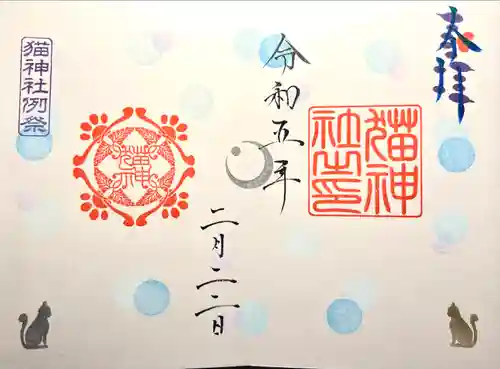 奉拝
猫神社之印
令和五年
二月二二日
猫神
猫神社例祭